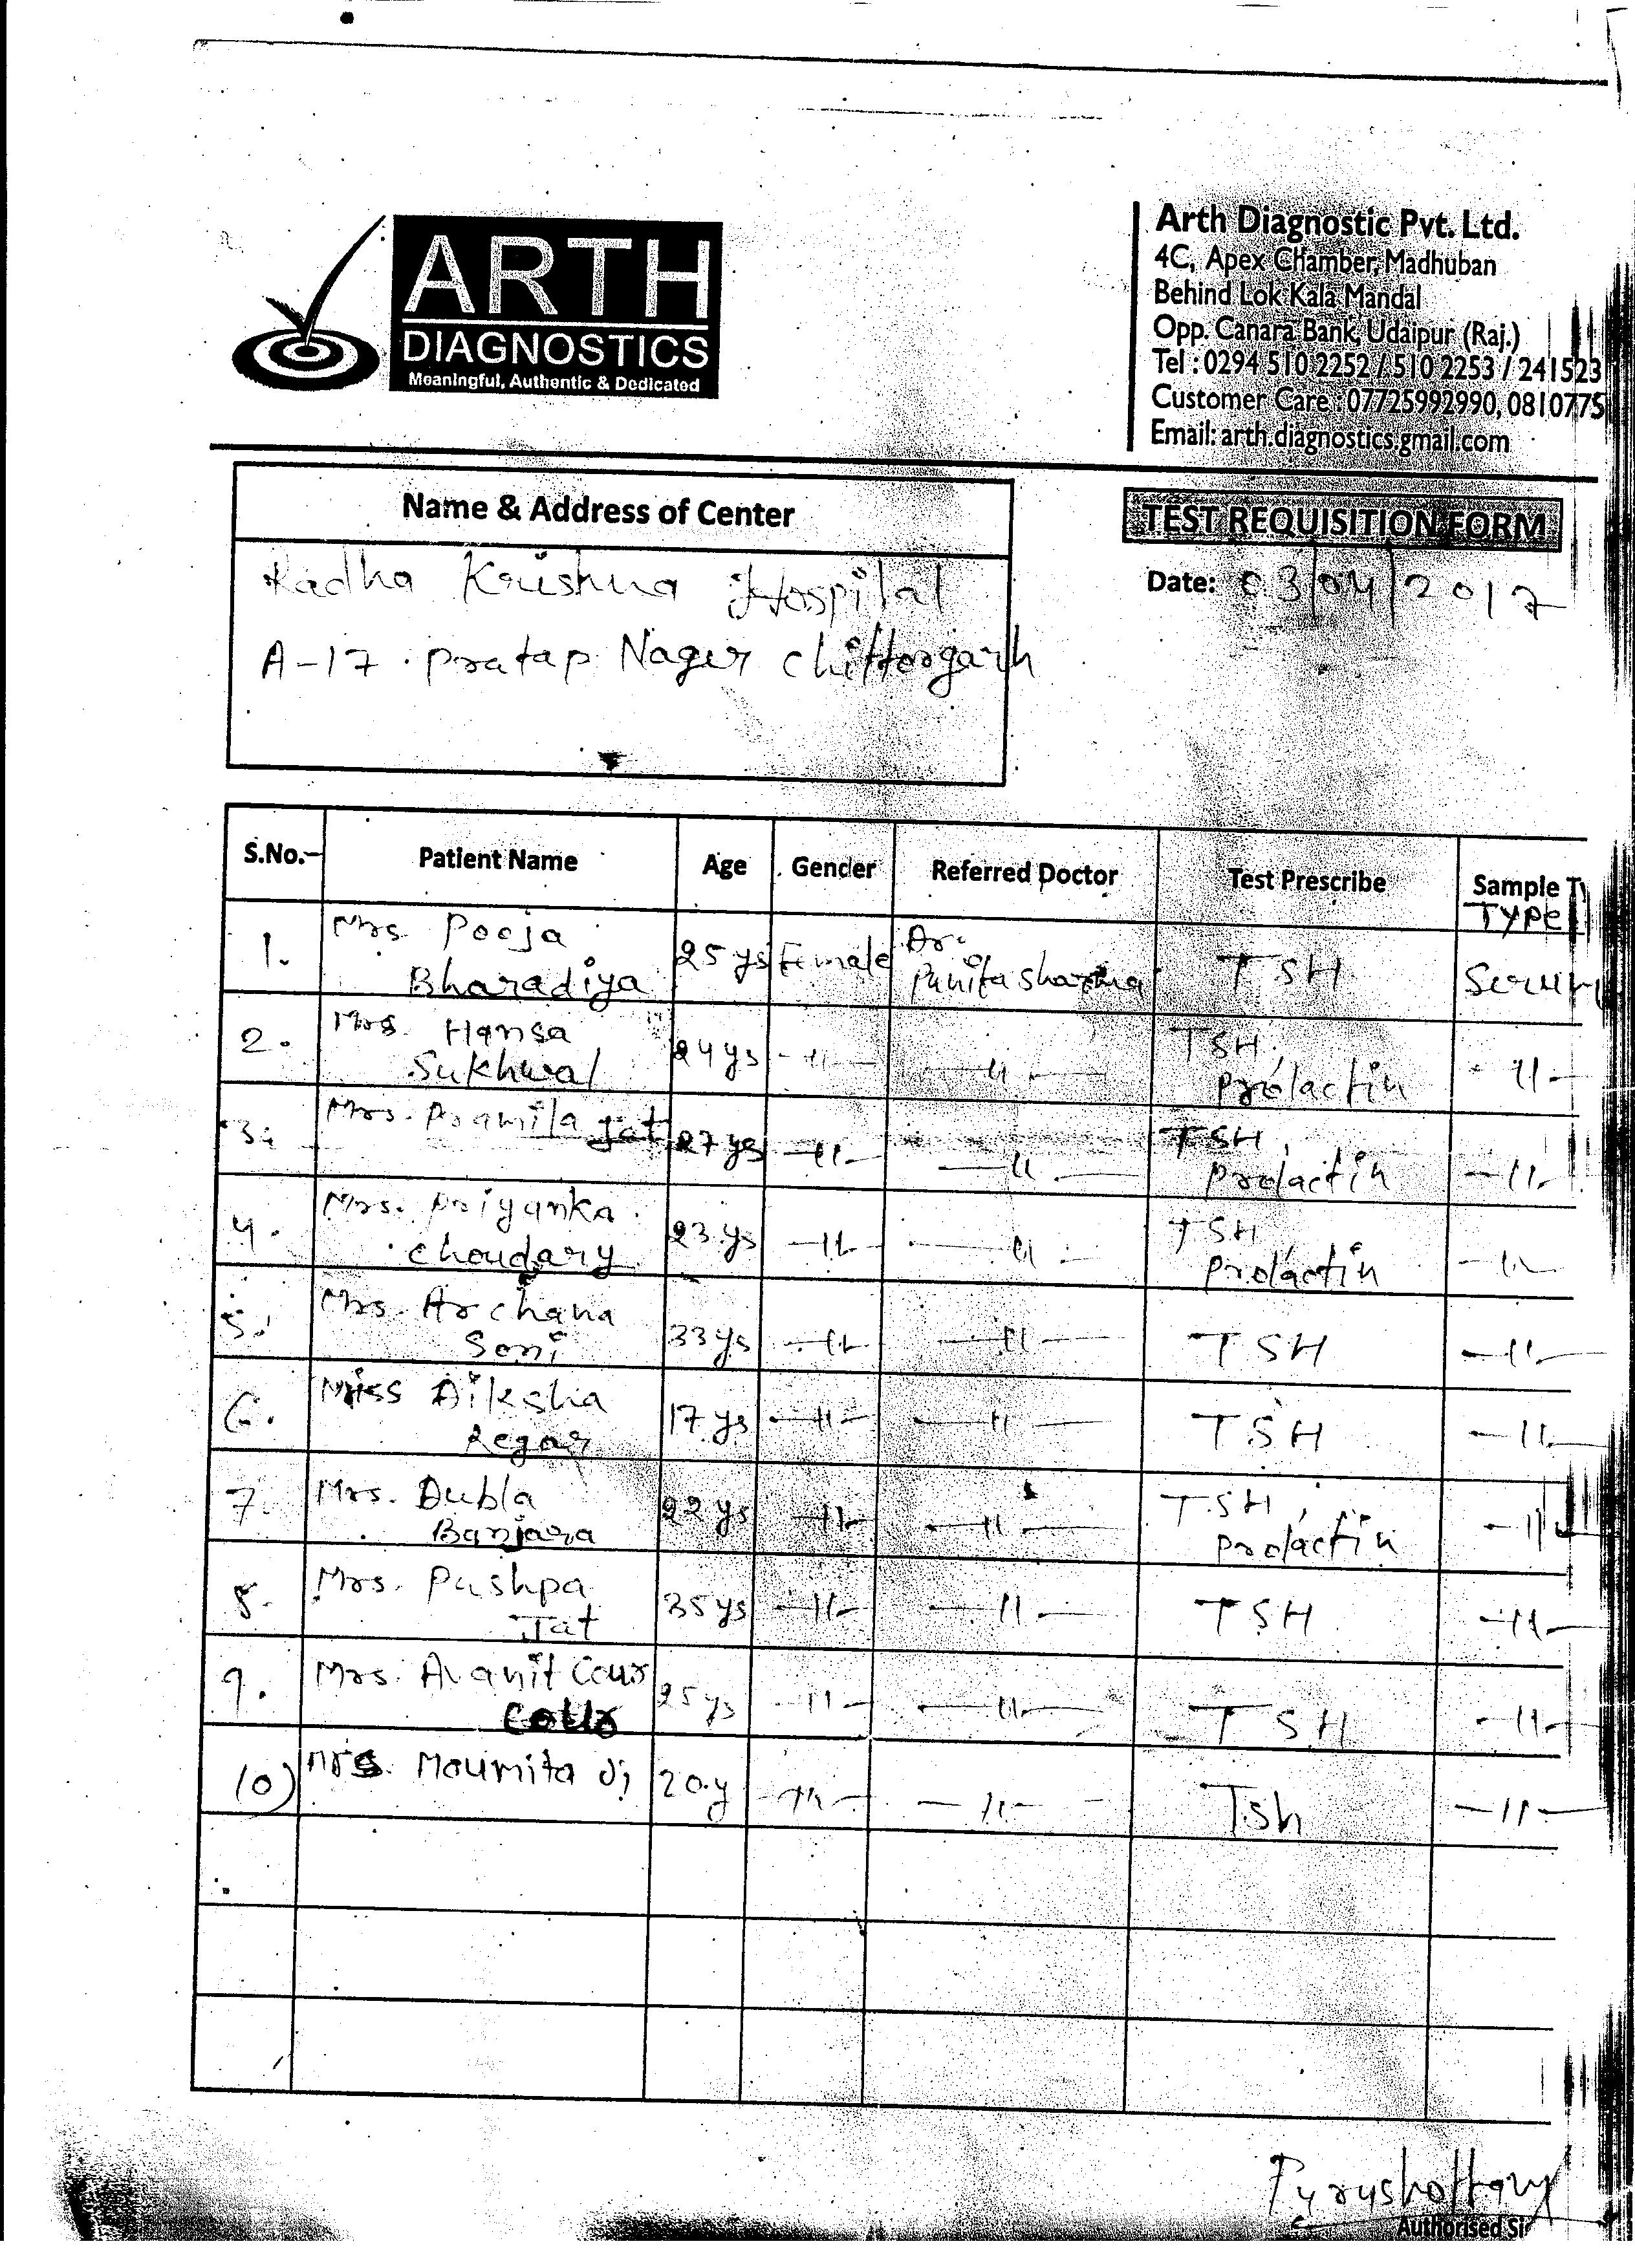 ARTH
DIAGNOSTICS
Meaningful, Authentic & Dedicated
Arth Diagnostic Pvt. Ltd.
4C, Apex Chamber, Madhuban
Behind Lok Kala Mandal
Opp. Canara Bank, Udaipur (Raj.)
Tel : 0294 510 2252 / 510 2253 / 241523
Customer Care : 07725992990, 0810775
Email: arth.diagnostics.gmail.com
Name & Address of Center
Radha Krishna Hospital
A-17 . Pratap Nager Chittorgarh
TEST REQUISITION FORM
Date: 03/04/2017
S.No. Patient Name Age Gender Referred Doctor Test Prescribe Sample Ty
TYPE
1. Mrs. Pooja Bharadiya 25 ys Female Dr. Punita Sharma TSH Serum
2. Mrs. Hansa Sukhwal 24 ys -11- -11- TSH, Prolactin -11-
3. Mrs. Pramila Jat 27 ys -11- -11- TSH, Prolactin -11-
4. Mrs. Priyanka Choudary 23 ys -11- -11- TSH, Prolactin -11-
5. Mrs. Archana Soni 33 ys -11- -11- TSH -11-
6. Miss Diksha Regar 17 ys -11- -11- TSH -11-
7. Mrs. Dubla Banjara 22 ys -11- -11- TSH, Prolactin -11-
8. Mrs. Pushpa Jat 35 ys -11- -11- TSH -11-
9. Mrs. Avanit Cour 25 ys -11- -11- TSH -11-
10) Mrs. Moumita 20 y -11- -11- Tsh -11-
Purushottam
Authorised Si